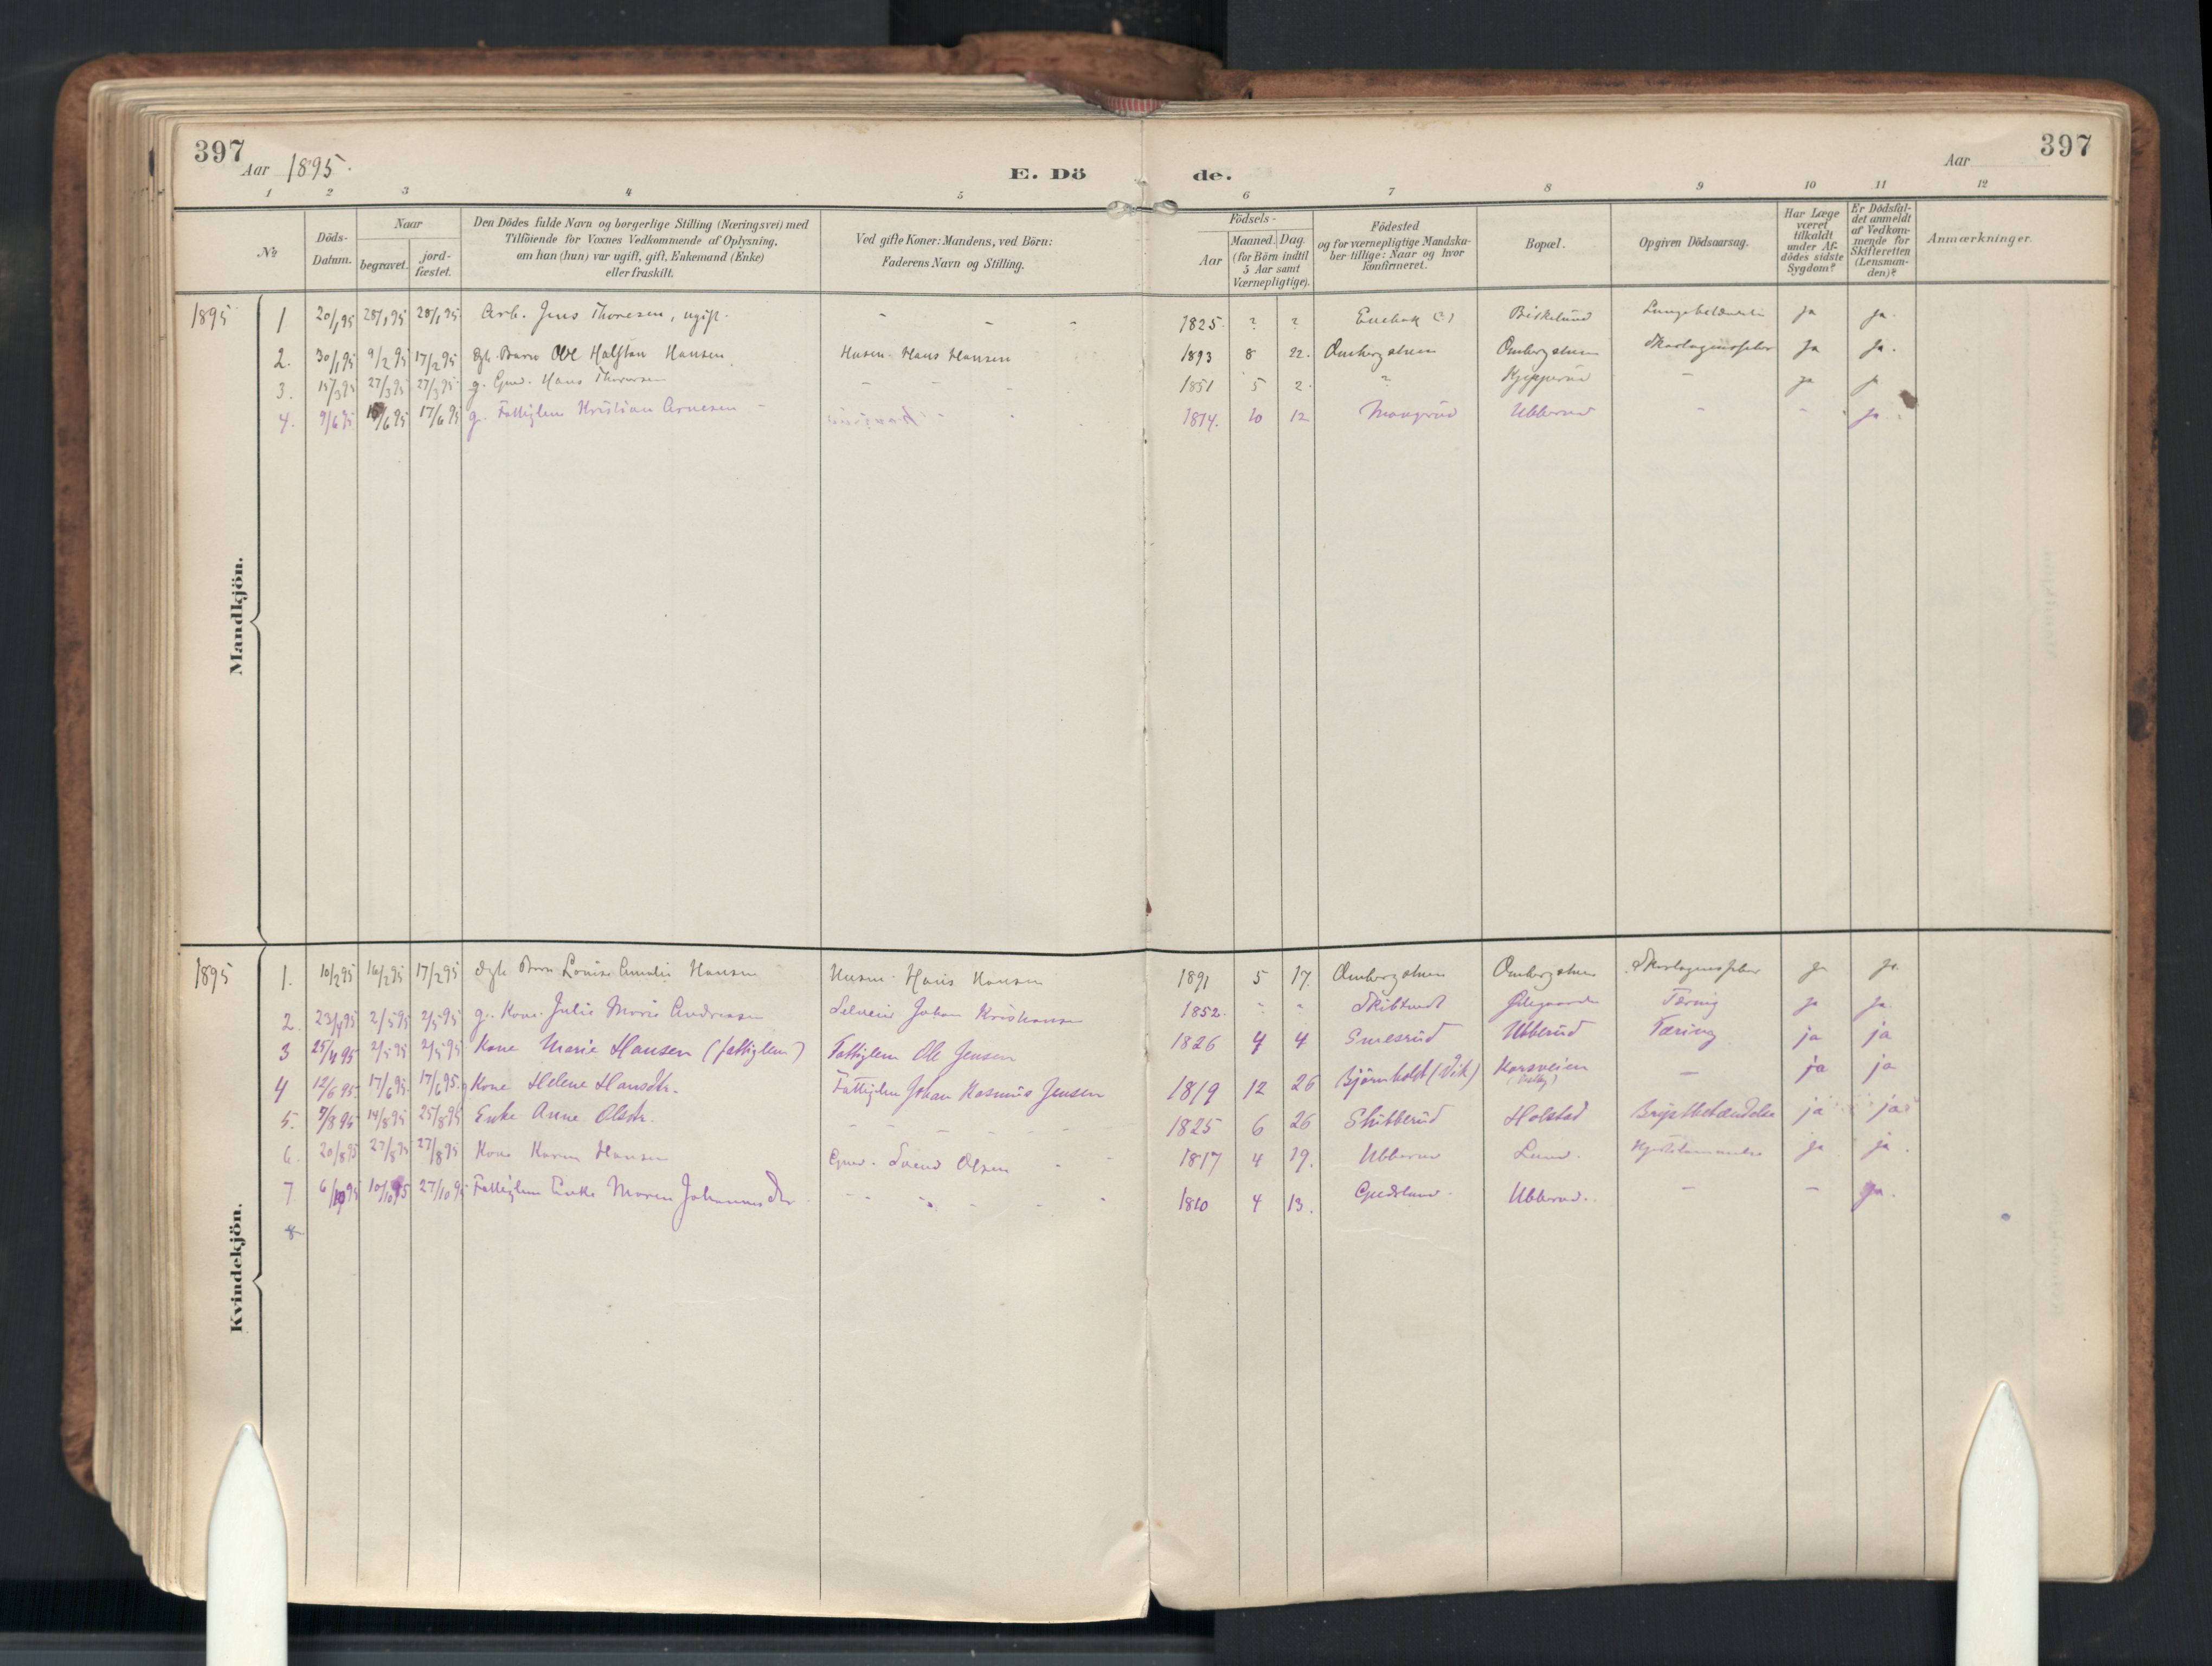 397
Aar 1895.
E. Dö de.
Aar
397
1 2 3 4 5 6 7 8 9 10 11 12
No
Döds-Datum.
Naar
begravet.
jord-fæstet.
Den Dödes fulde Navn og borgerlige Stilling (Næringsvei) med
Tilföiende for Voxnes Vedkommende af Oplysning,
om han (hun) var ugift, gift, Enkemand (Enke)
eller fraskilt.
Ved gifte Koner: Mandens, ved Börn:
Faderens Navn og Stilling.
Födsels-
Aar
Maaned. Dag.
(for Börn indtil
5 Aar samt
Værnepligtige).
Födested
og for værnepligtige Mandska-
ber tillige: Naar og hvor
konfirmeret.
Bopæl.
Opgiven Dödsaarsag.
Har Læge
været
tilkaldt
under Af-
dödes sidste
Sygdom?
Er Dödsfal-
det anmeldt
af Vedkom-
mende for
Skifteretten
(Lensman-
den)?
Anmærkninger.
Mandkjön.
1895 1 20/1 95 28/1 95 28/1 95 Arb. Jens Thoresen, ugift. - - - 1825. ? ? Enebak (?) Biskelund ja ja.
2. 30/1 95 9/2 95 17/2 95 Ægte Barn Ole Halfdan Hansen. Husm. Hans Hansen 1893 8 22. Ombergstuen Ombergstuen Skarlagensfeber ja ja.
3. 15/3 95 27/3 95 27/3 95 g. Gmd. Hans Thoresen - - - 1851 5 2. ? Kjepperud - ja ja
4. 9/6 95 /6 95 17/6 95 g. Fattiglem Kristian Arnesen - 1814. 10 12 Mangrud Ubberud - - ja.
Kvindekjön.
1895 1. 10/2 95 16/2 95 17/2 95 Ægte Barn Louise Amalie Hansen Husm. Hans Hansen 1891 5 17. Ombergstuen Ombergstuen Skarlagensfeber ja ja.
2. 23/4 95 2/5 95 2/5 95 g. Kone Julie Marie Andreasen Selveier Johan Kristiansen 1852. - - Skibtvedt Ødegaarden Tæring ja ja.
3 25/4 95 2/5 95 2/5 95 Kone Marie Hansen (fattiglem) Fattiglem Ole Jensen 1826 4 4 Smesrud Ubberud Tæring ja ja
4 12/6 95. 17/6 95. 17/6 95. Kone Helene Hansdtr. Fattiglem Johan Rasmus Jensen 1819 12 26 Björnholdt (Vik) Korsveien - ja ja
5. 7/8 95 14/8 95 25/8 95 Enke Anne Olsdtr. - - - 1825 6 26 Skibberud Holstad Brystbetændelse ja ja
6. 20/8 95 27/8 95 27/8 95 Kone Karen Hansen Gmd. Svend Olsen 1817 4 29. Ubberud Lund. Hjertelammelse ja ja.
7 6/10 95 10/10 95 27/10 95 Fattiglem Enke Maren Johannesdtr - - - 1810 4 13. Gjedslund. Ubberud. - - ja.
8